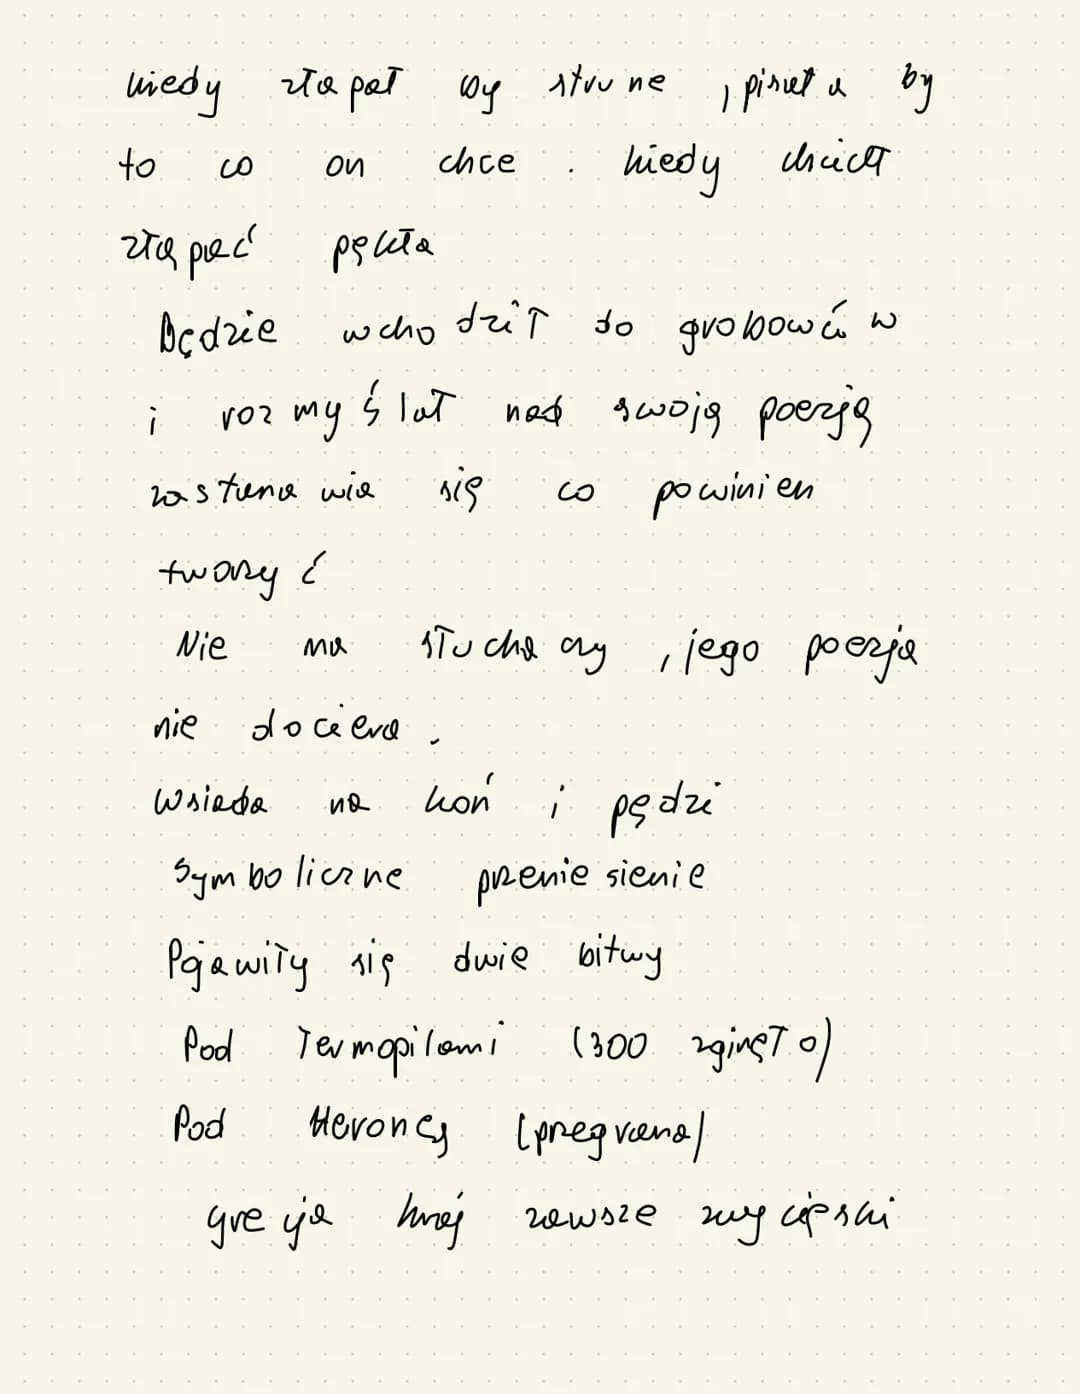 kiedy złapał by strune , pisał a by
to co on chce . kiedy chciał
złapać pękła
Będzie wchodził do grobowców
i rozmyślał nad swoją poezją
zastanawia się co powinien
tworzyć
Nie ma słuchaczy , jego poezja
nie dociera .
Wsiada na koń i pędzi
Symboliczne przenie sienie
Pojawiły się dwie bitwy
Pod Termopilami (300 zginęło)
Pod Heroneą (przegrana)
grecja kraj zawsze zwycięski